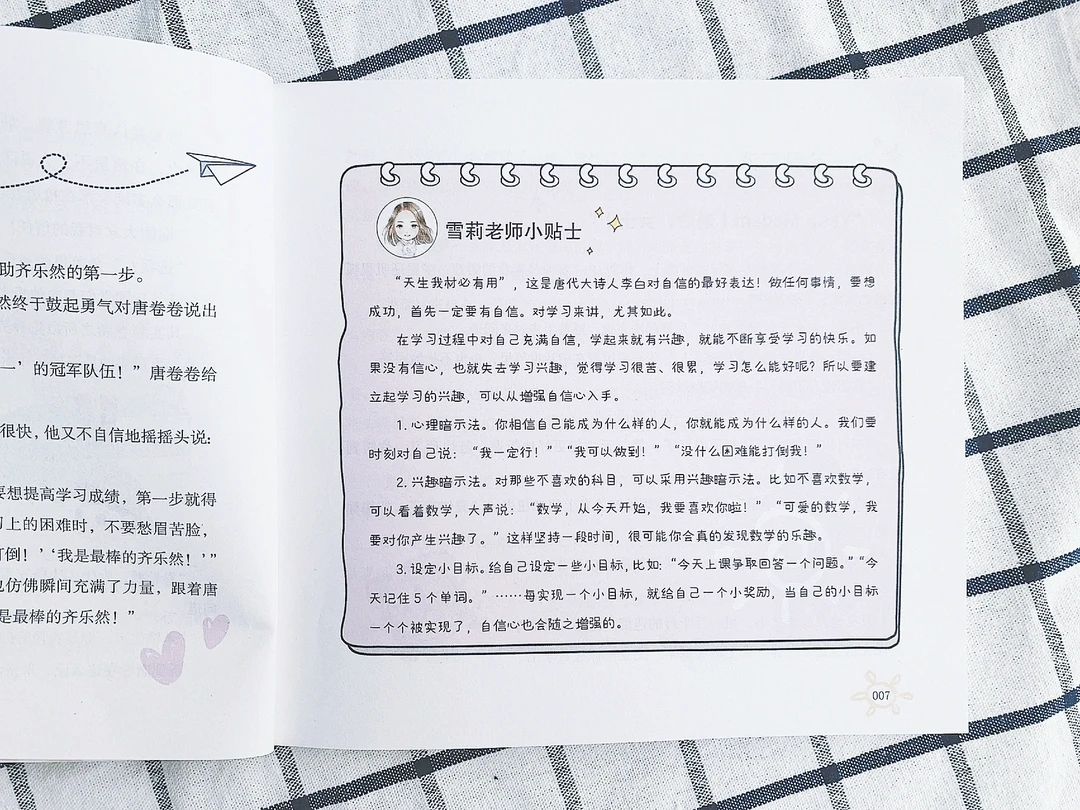 助齐乐然的第一步。
然终于鼓起勇气对唐卷卷说出
一’的冠军队伍！”唐卷卷给
很快，他又不自信地摇摇头说：
要想提高学习成绩，第一步就得
习上的困难时，不要愁眉苦脸，
打倒！’‘我是最棒的齐乐然！’”
也仿佛瞬间充满了力量，跟着唐
是最棒的齐乐然！”
雪莉老师小贴士
“天生我材必有用”，这是唐代大诗人李白对自信的最好表达！做任何事情，要想
成功，首先一定要有自信。对学习来讲，尤其如此。
在学习过程中对自己充满自信，学起来就有兴趣，就能不断享受学习的快乐。如
果没有信心，也就失去学习兴趣，觉得学习很苦、很累，学习怎么能好呢？所以要建
立起学习的兴趣，可以从增强自信心入手。
1. 心理暗示法。你相信自己能成为什么样的人，你就能成为什么样的人。我们要
时刻对自己说：“我一定行！”“我可以做到！”“没什么困难能打倒我！”
2. 兴趣暗示法。对那些不喜欢的科目，可以采用兴趣暗示法。比如不喜欢数学，
可以看着数学，大声说：“数学，从今天开始，我要喜欢你啦！”“可爱的数学，我
要对你产生兴趣了。”这样坚持一段时间，很可能你会真的发现数学的乐趣。
3. 设定小目标。给自己设定一些小目标，比如：“今天上课争取回答一个问题。”“今
天记住 5 个单词。”……每实现一个小目标，就给自己一个小奖励，当自己的小目标
一个个被实现了，自信心也会随之增强的。
007